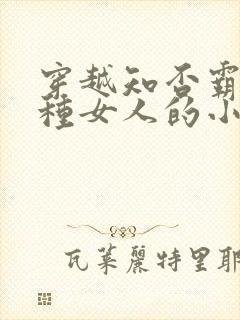 穿越知否霸
種女人的小
瓦萊麗特里耶